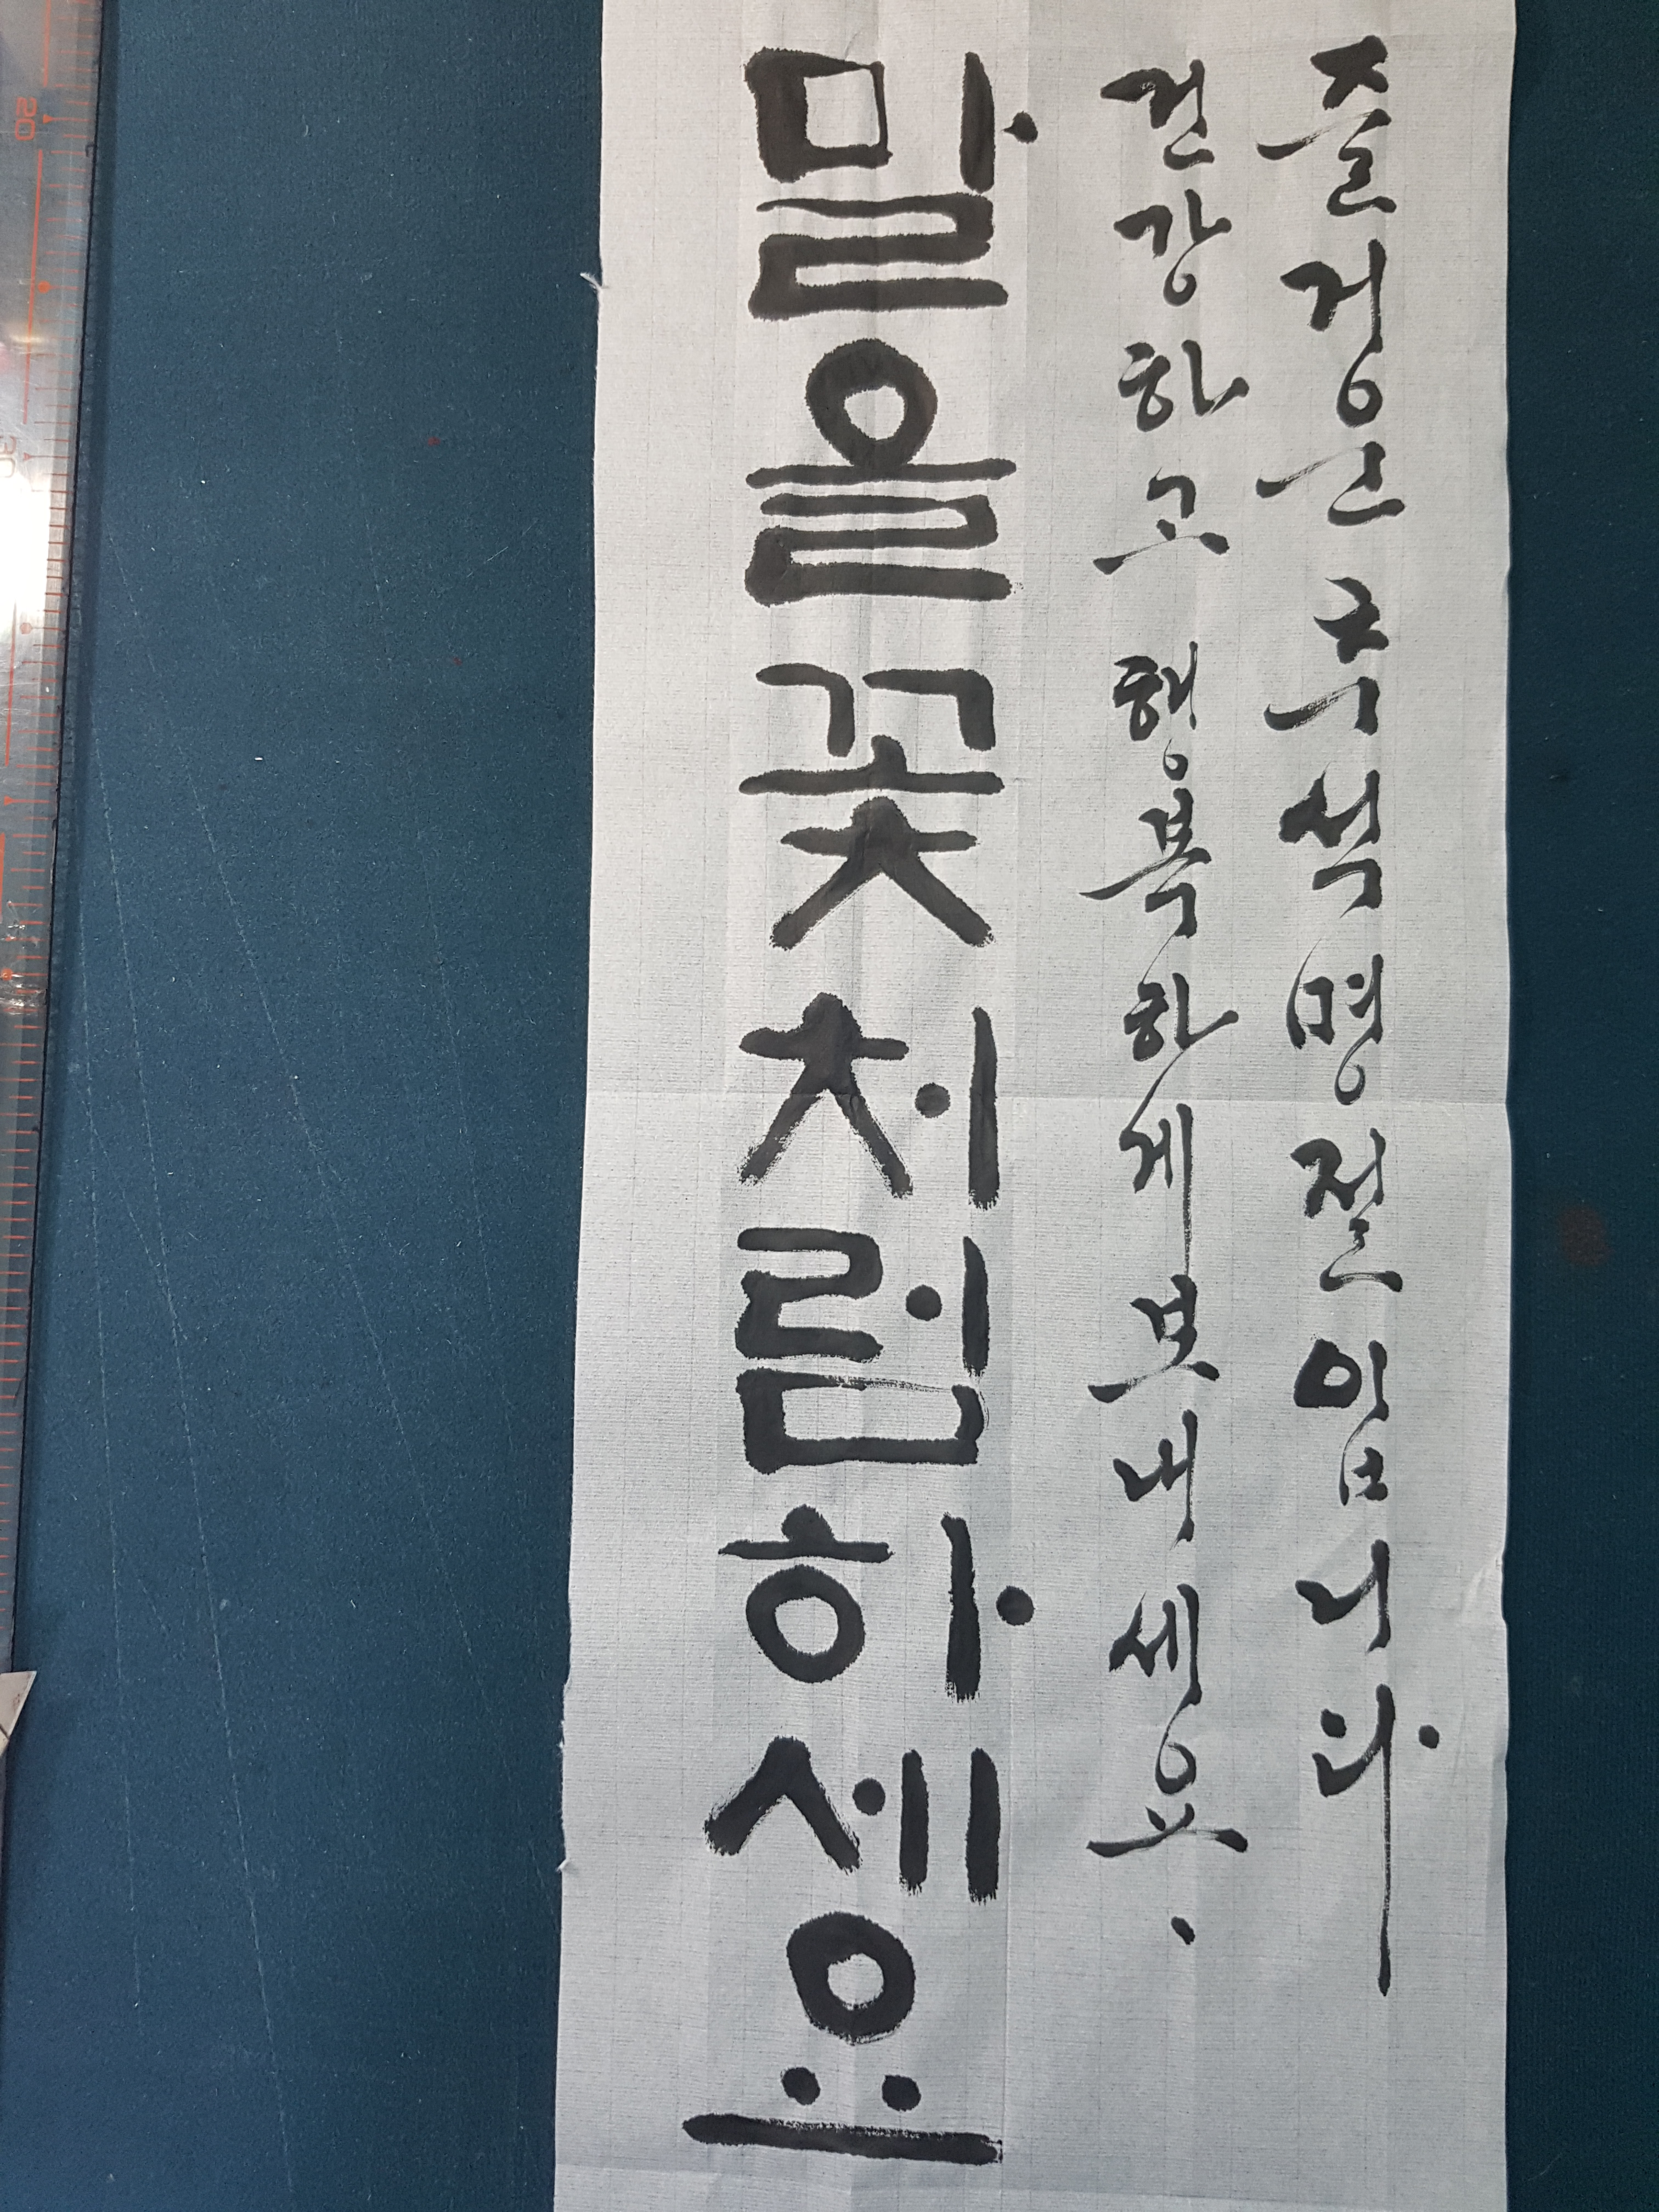 즐거운 추석 명절 입니다
건강하고 행복하게 보내세요.
말을 꽃처럼 하세요
20
30